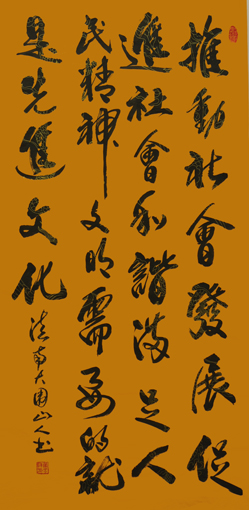 推動社會發展促
進社會和諧滿足人
民精神文明需要的就
是先進文化
滇南大围山人书